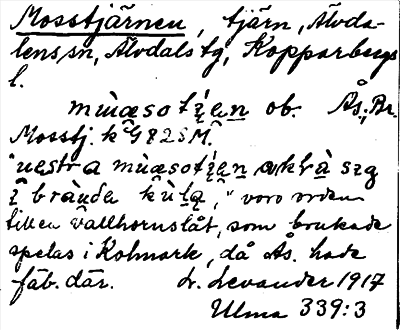 Mosstjärnen, tjärn, Älvda-
lens sn, Älvdals tg, Kopparbergs
l.
mùæsotįęn ob. Ås, Br.
Mosstj. k G 82 S M.
"uestra mùæsotįęn
į brànda kùlą," voro orden
till en vallhornslåt, som brukade
spelas i Kolmark, då Ås. hade
fäb. där. L. Levander 1917
Ulma 339:3